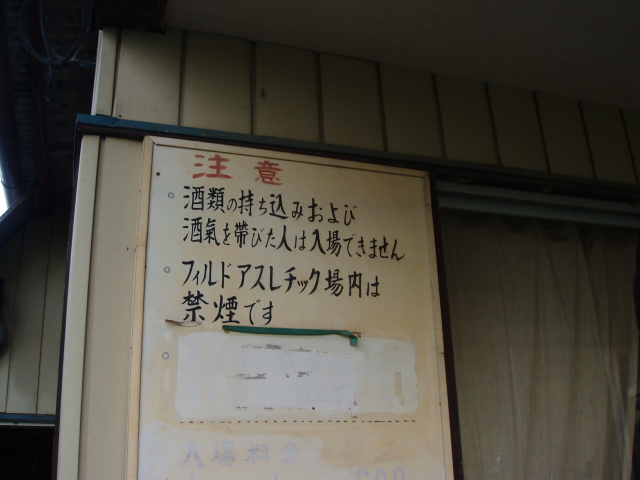 注意
○酒類の持ち込みおよび
酒氣を帯びた人は入場できません
○フィルドアスレチック場内は
禁煙です
○
入場料金